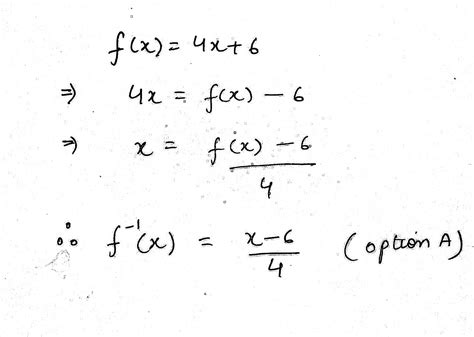 f(x) = 4x+6
⇒ 4x = f(x) − 6
⇒ x = f(x) − 6 / 4
∴ f⁻¹(x) = x−6 / 4 (option A)